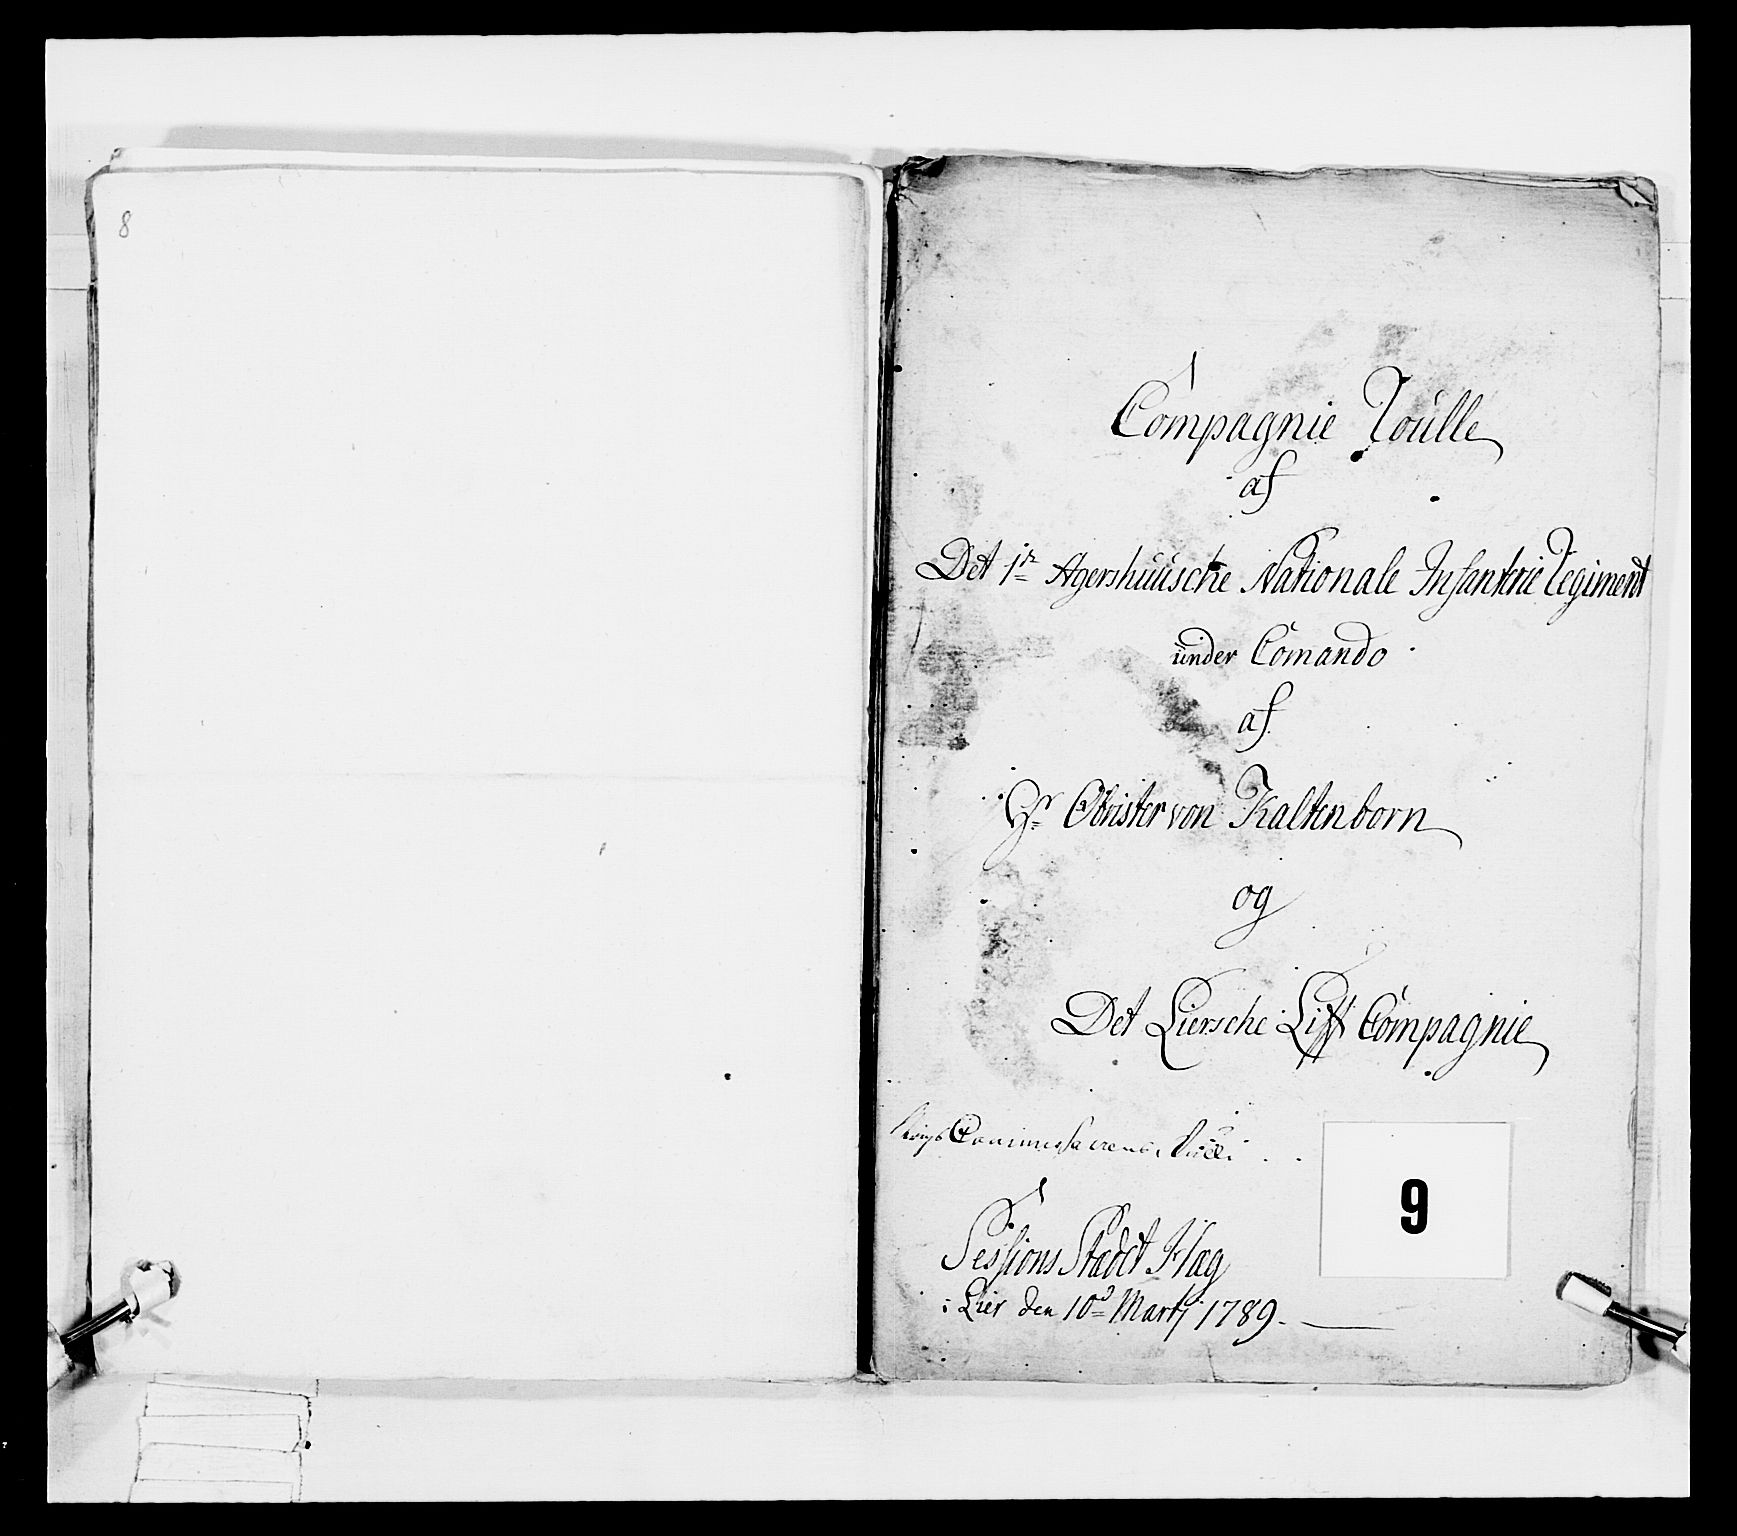 8
Compagnie Roulle
af
Det 1te Agershuusche Nationale Infanterie Regiment
under Comando
af
Hr Obrister von Kaltenborn
og
Det Liersche Lifft Compagnie
Krigs Commissairens Rulle
9
Sessions Stædet Hæg
i Lier den 10d Martj 1789.